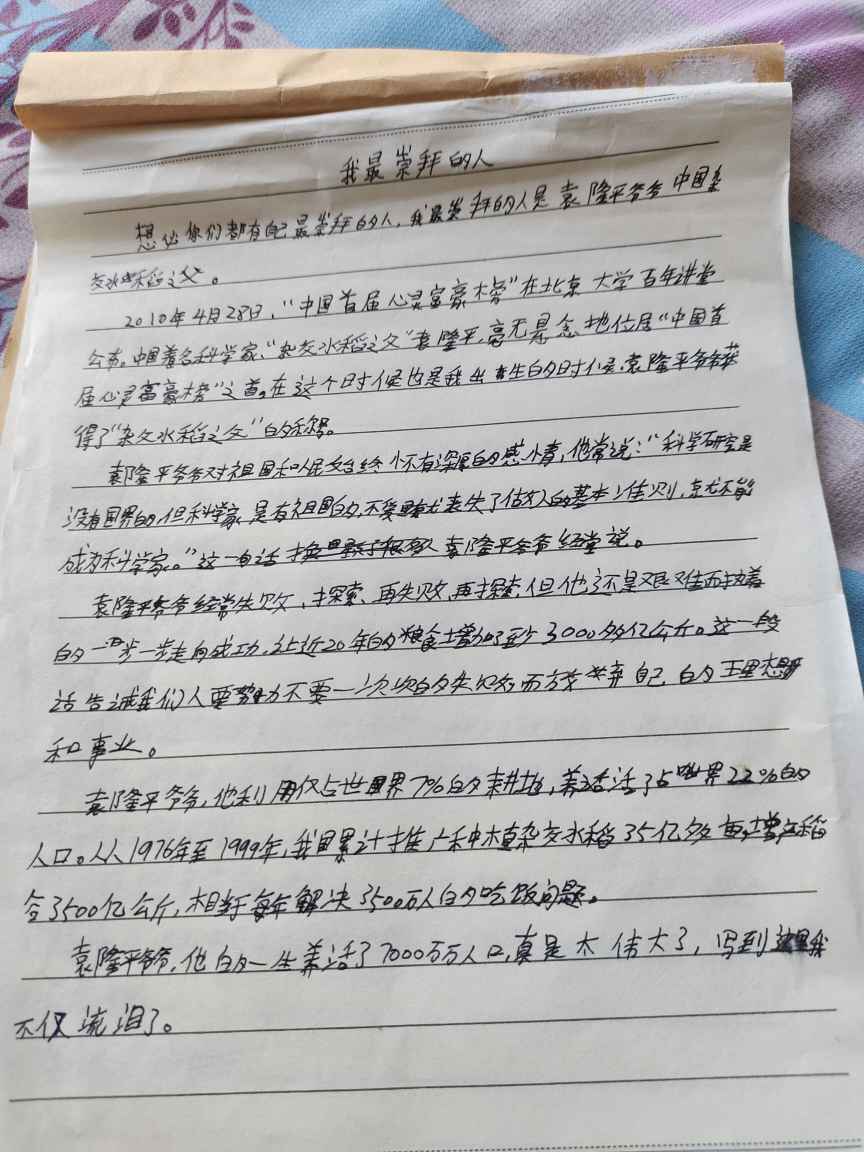 我最崇拜的人
想必你们都有自己最崇拜的人，我最崇拜的人是袁隆平爷爷中国杂
交水稻之父。
2010年4月28日，"中国首届心灵富豪榜"在北京大学百年讲堂
公布。中国著名科学家、"杂交水稻之父"袁隆平，毫无悬念地位居"中国首
届心灵富豪榜"之首。在这个时候也是我出生的时候，袁隆平爷爷获
得了"杂交水稻之父"的称号。
袁隆平爷爷对祖国和人民始终怀有深厚的感情，他常说："科学研究是
没有国界的，但科学家是有祖国的，不爱国就丧失了做人的基本准则，就不能
成为科学家。"这一句话袁隆平爷爷经常说。
袁隆平爷爷经常失败、探索、再失败、再探索，但他还是艰难而执着
的一步一步走向成功，让近20年的粮食增加至少3000多亿公斤。这一段
话告诫我们人要努力不要一次次的失败而放弃自己的理想
和事业。
袁隆平爷爷，他利用仅占世界7%的耕地，养活了占世界22%的
人口。从1976年至1999年，我国累计推广种植杂交水稻35亿多亩，增产稻
谷3500亿公斤，相当于每年解决3500万人的吃饭问题。
袁隆平爷爷，他的一生养活了7000万万人口，真是太伟大了，写到这里我
不仅流泪了。